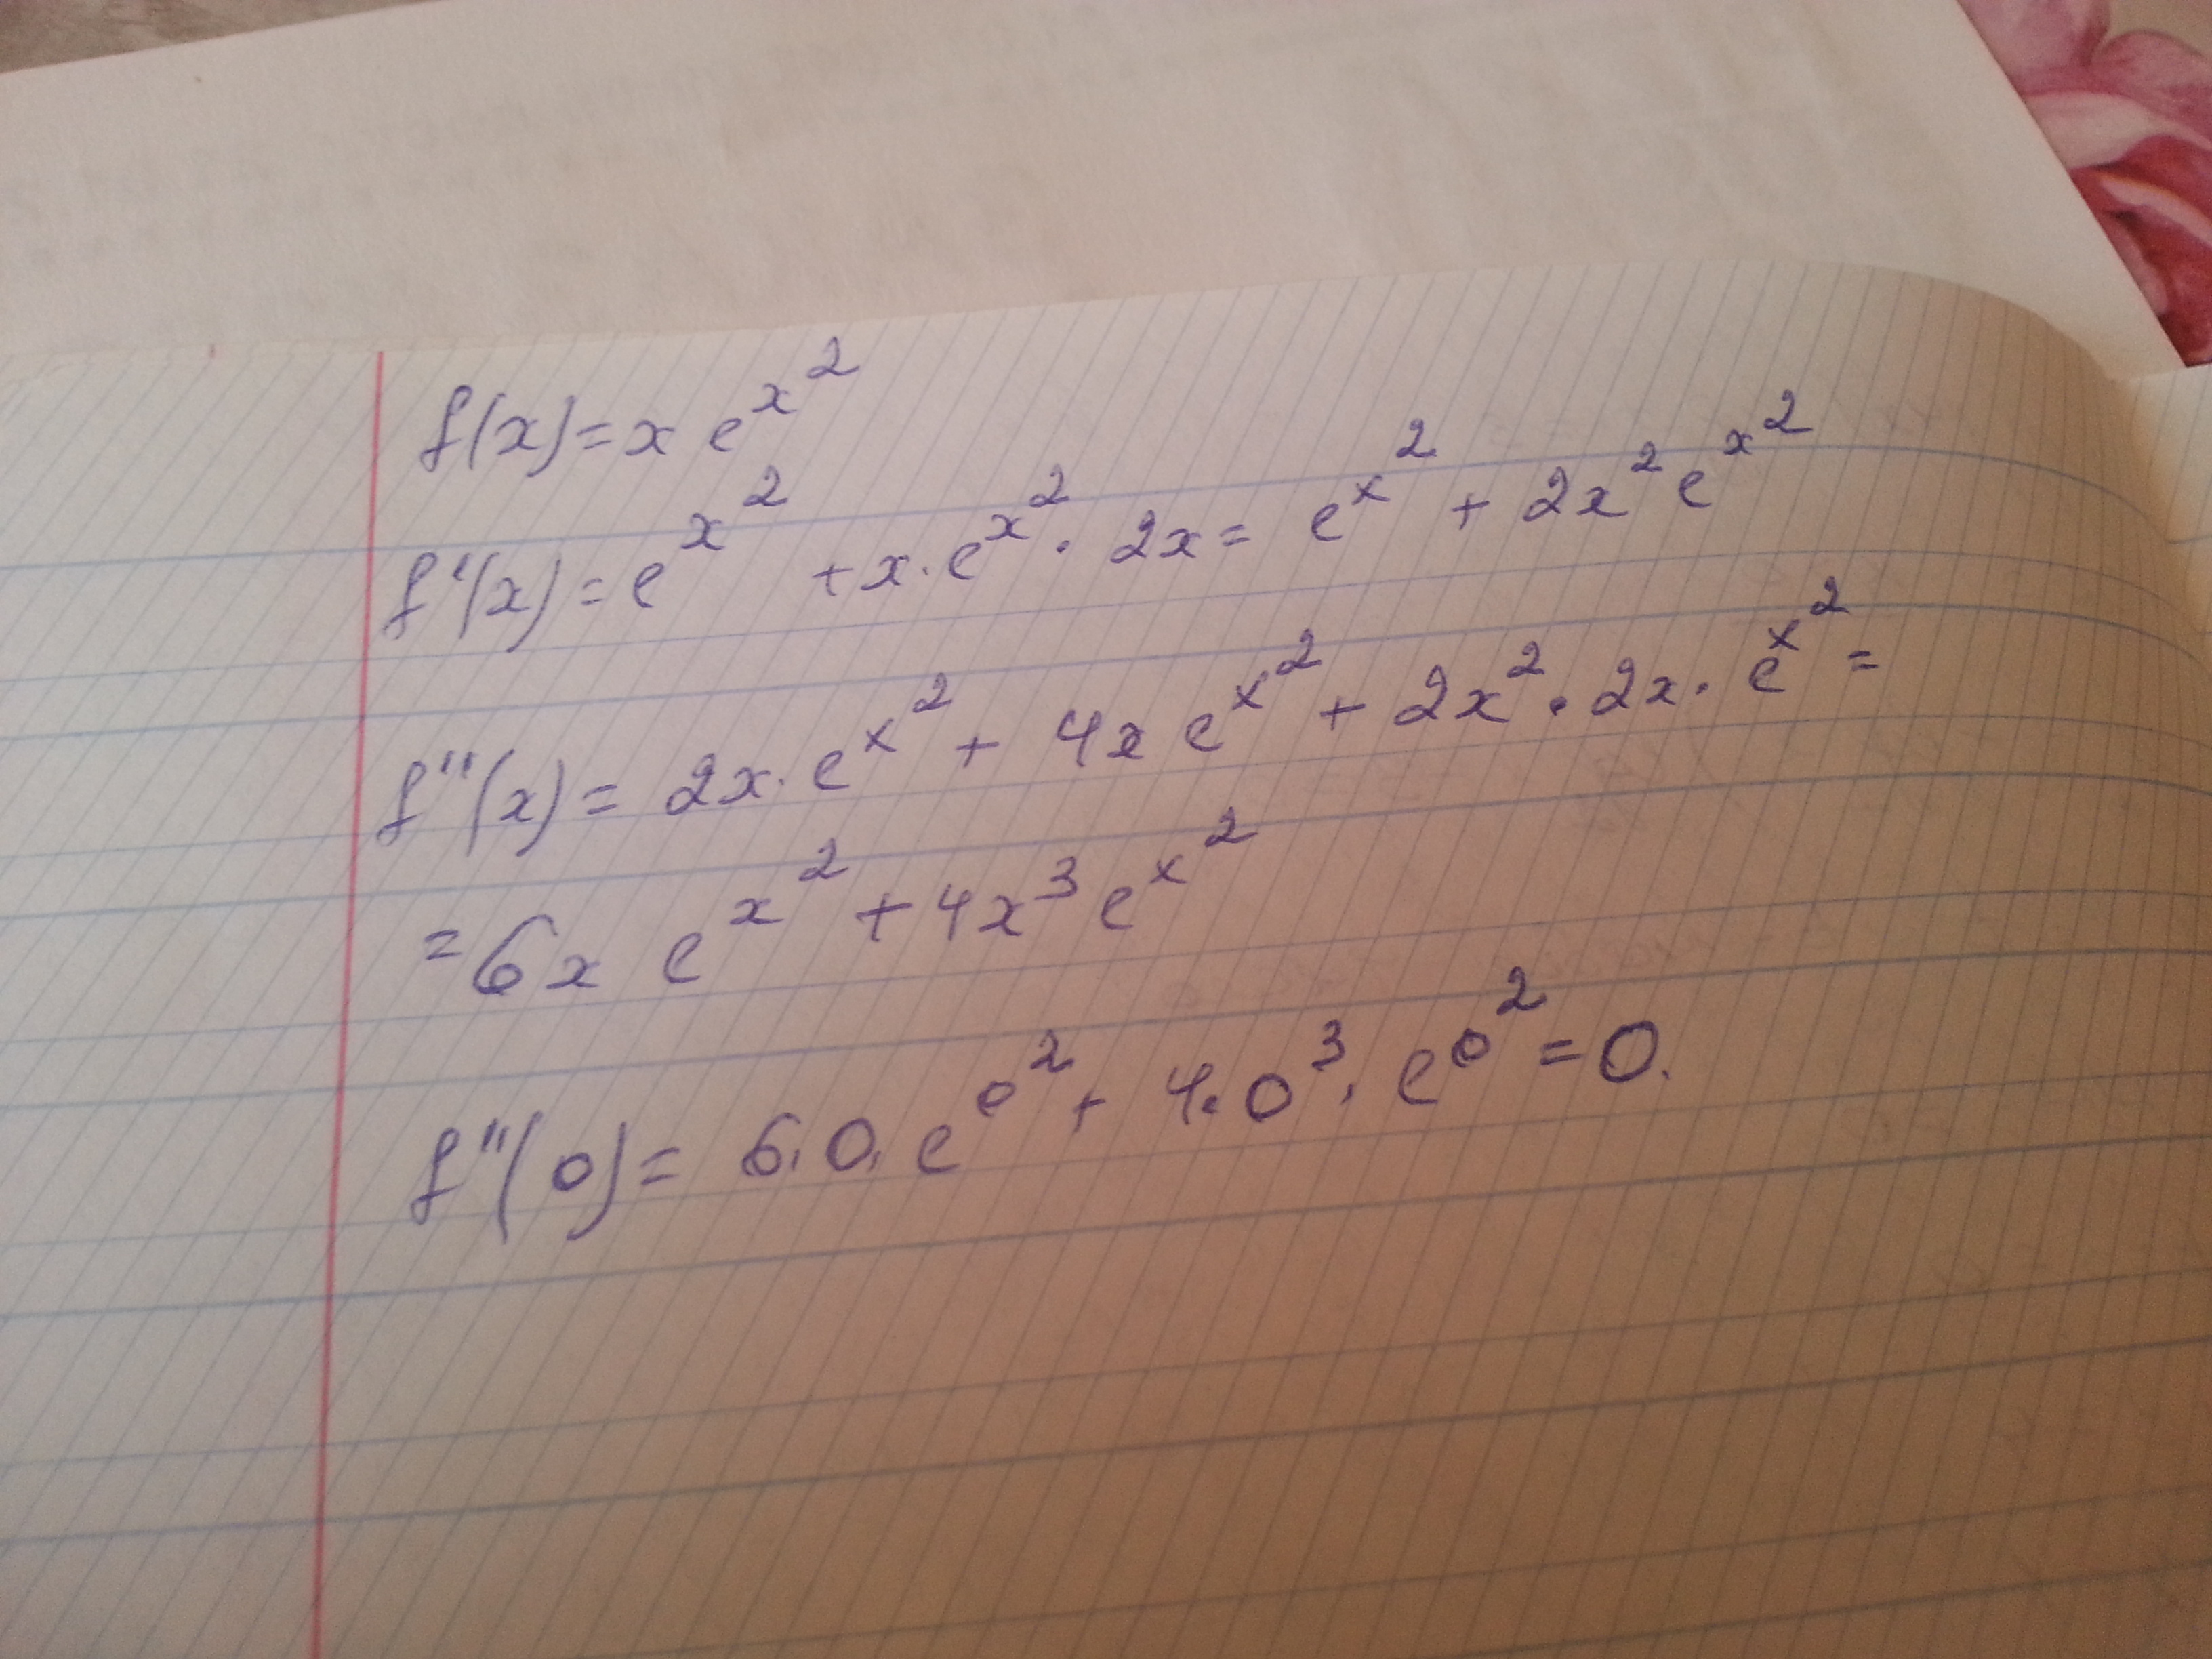 f(x) = x e^{x^2}
f'(x) = e^{x^2} + x · e^{x^2} · 2x = e^{x^2} + 2x^2 e^{x^2}
f''(x) = 2x · e^{x^2} + 4x e^{x^2} + 2x^2 · 2x · e^{x^2} =
= 6x e^{x^2} + 4x^3 e^{x^2}
f''(0) = 6 · 0 · e^{0^2} + 4 · 0^3 · e^{0^2} = 0.